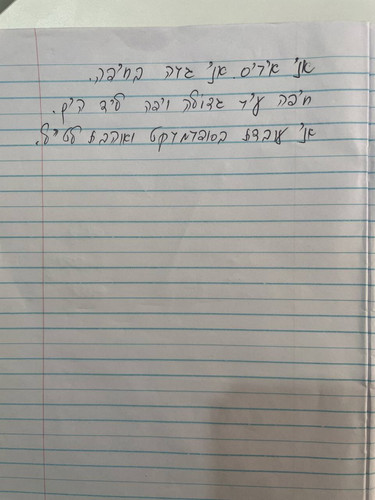 אני איריס. אני גרה בחיפה.
חיפה עיר גדולה ויפה ליד הים.
אני עובדת בסופרמרקט ואוהבת לטייל.